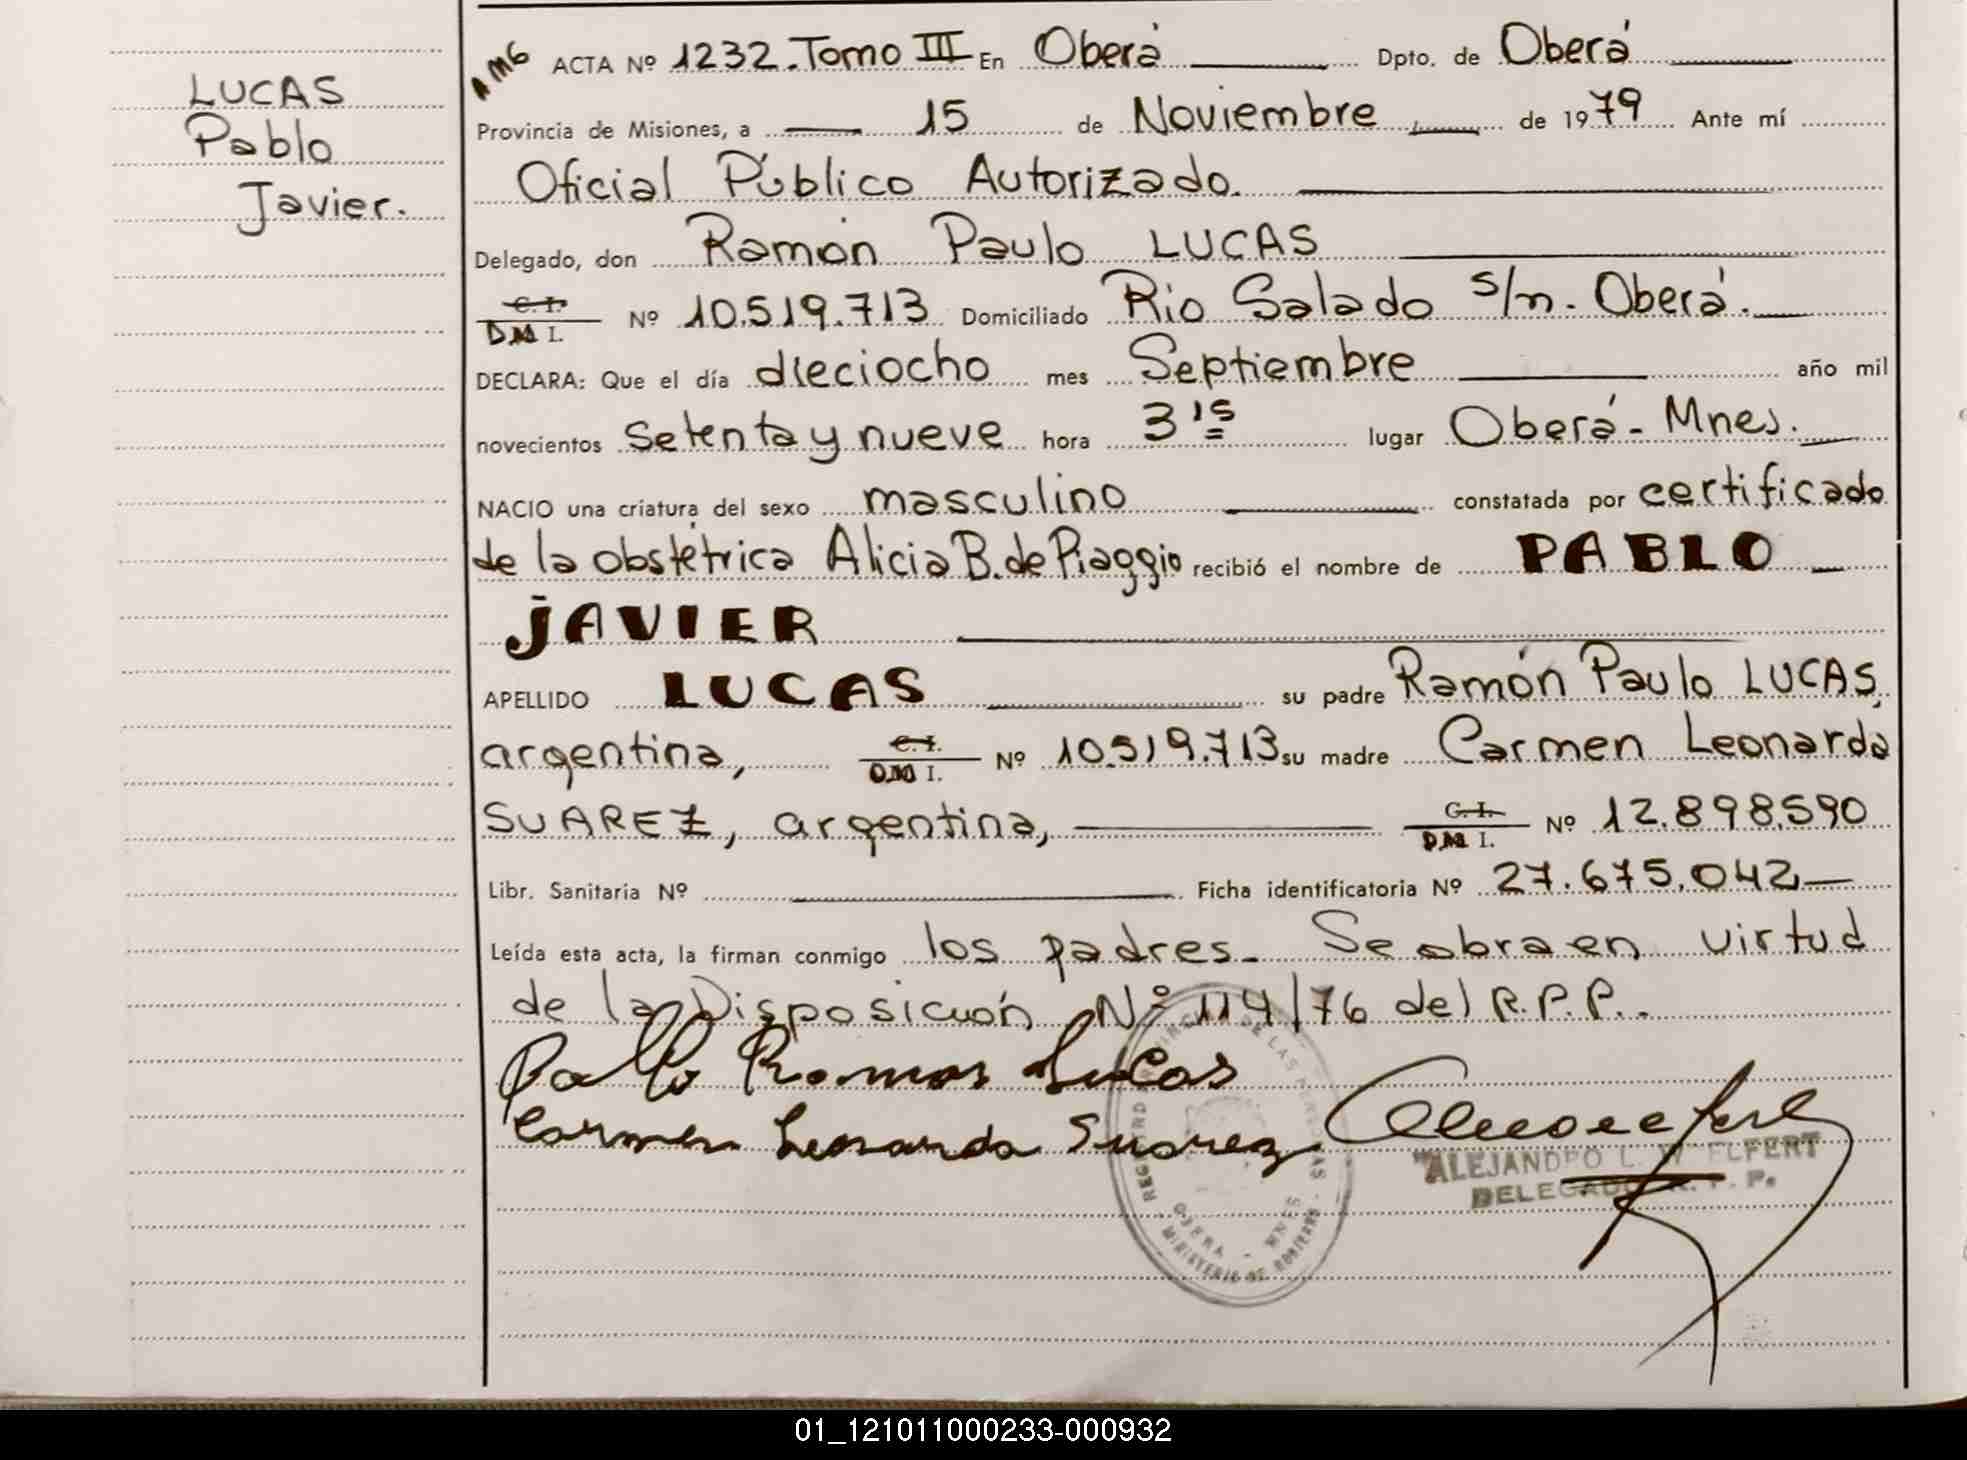 LUCAS
Pablo
Javier.
AMG ACTA Nº 1232. Tomo III En Oberá Dpto. de Oberá
Provincia de Misiones, a 15 de Noviembre de 1979 Ante mí
Oficial Público Autorizado.
Delegado, don Ramón Paulo LUCAS
C. I.
D.N.I. Nº 10.519.713 Domiciliado Rio Salado s/n. Oberá.
DECLARA: Que el día dieciocho mes Septiembre año mil
novecientos setenta y nueve hora 3 15 lugar Oberá - Mnes.
NACIO una criatura del sexo masculino constatada por certificado
de la obstétrica Alicia B. de Piaggio recibió el nombre de PABLO
JAVIER
APELLIDO LUCAS su padre Ramón Paulo LUCAS,
argentina, C. I. D.N.I. Nº 10.519.713 su madre Carmen Leonarda
SUAREZ, argentina, C. I. D.N.I. Nº 12.898.590
Libr. Sanitaria Nº Ficha identificatoria Nº 27.675.042
Leída esta acta, la firman conmigo los padres. Se obra en virtud
de la Disposición Nº 114/76 del R.P.P..
Pablo Ramon Lucas
Carmen Leonarda Suarez
ALEJANDRO L. W. ELFERT
DELEGADO R. P. P.
REGISTRO PROVINCIAL DE LAS PERSONAS
OBERA - MNES
MINISTERIO DE GOBIERNO
01_121011000233-000932